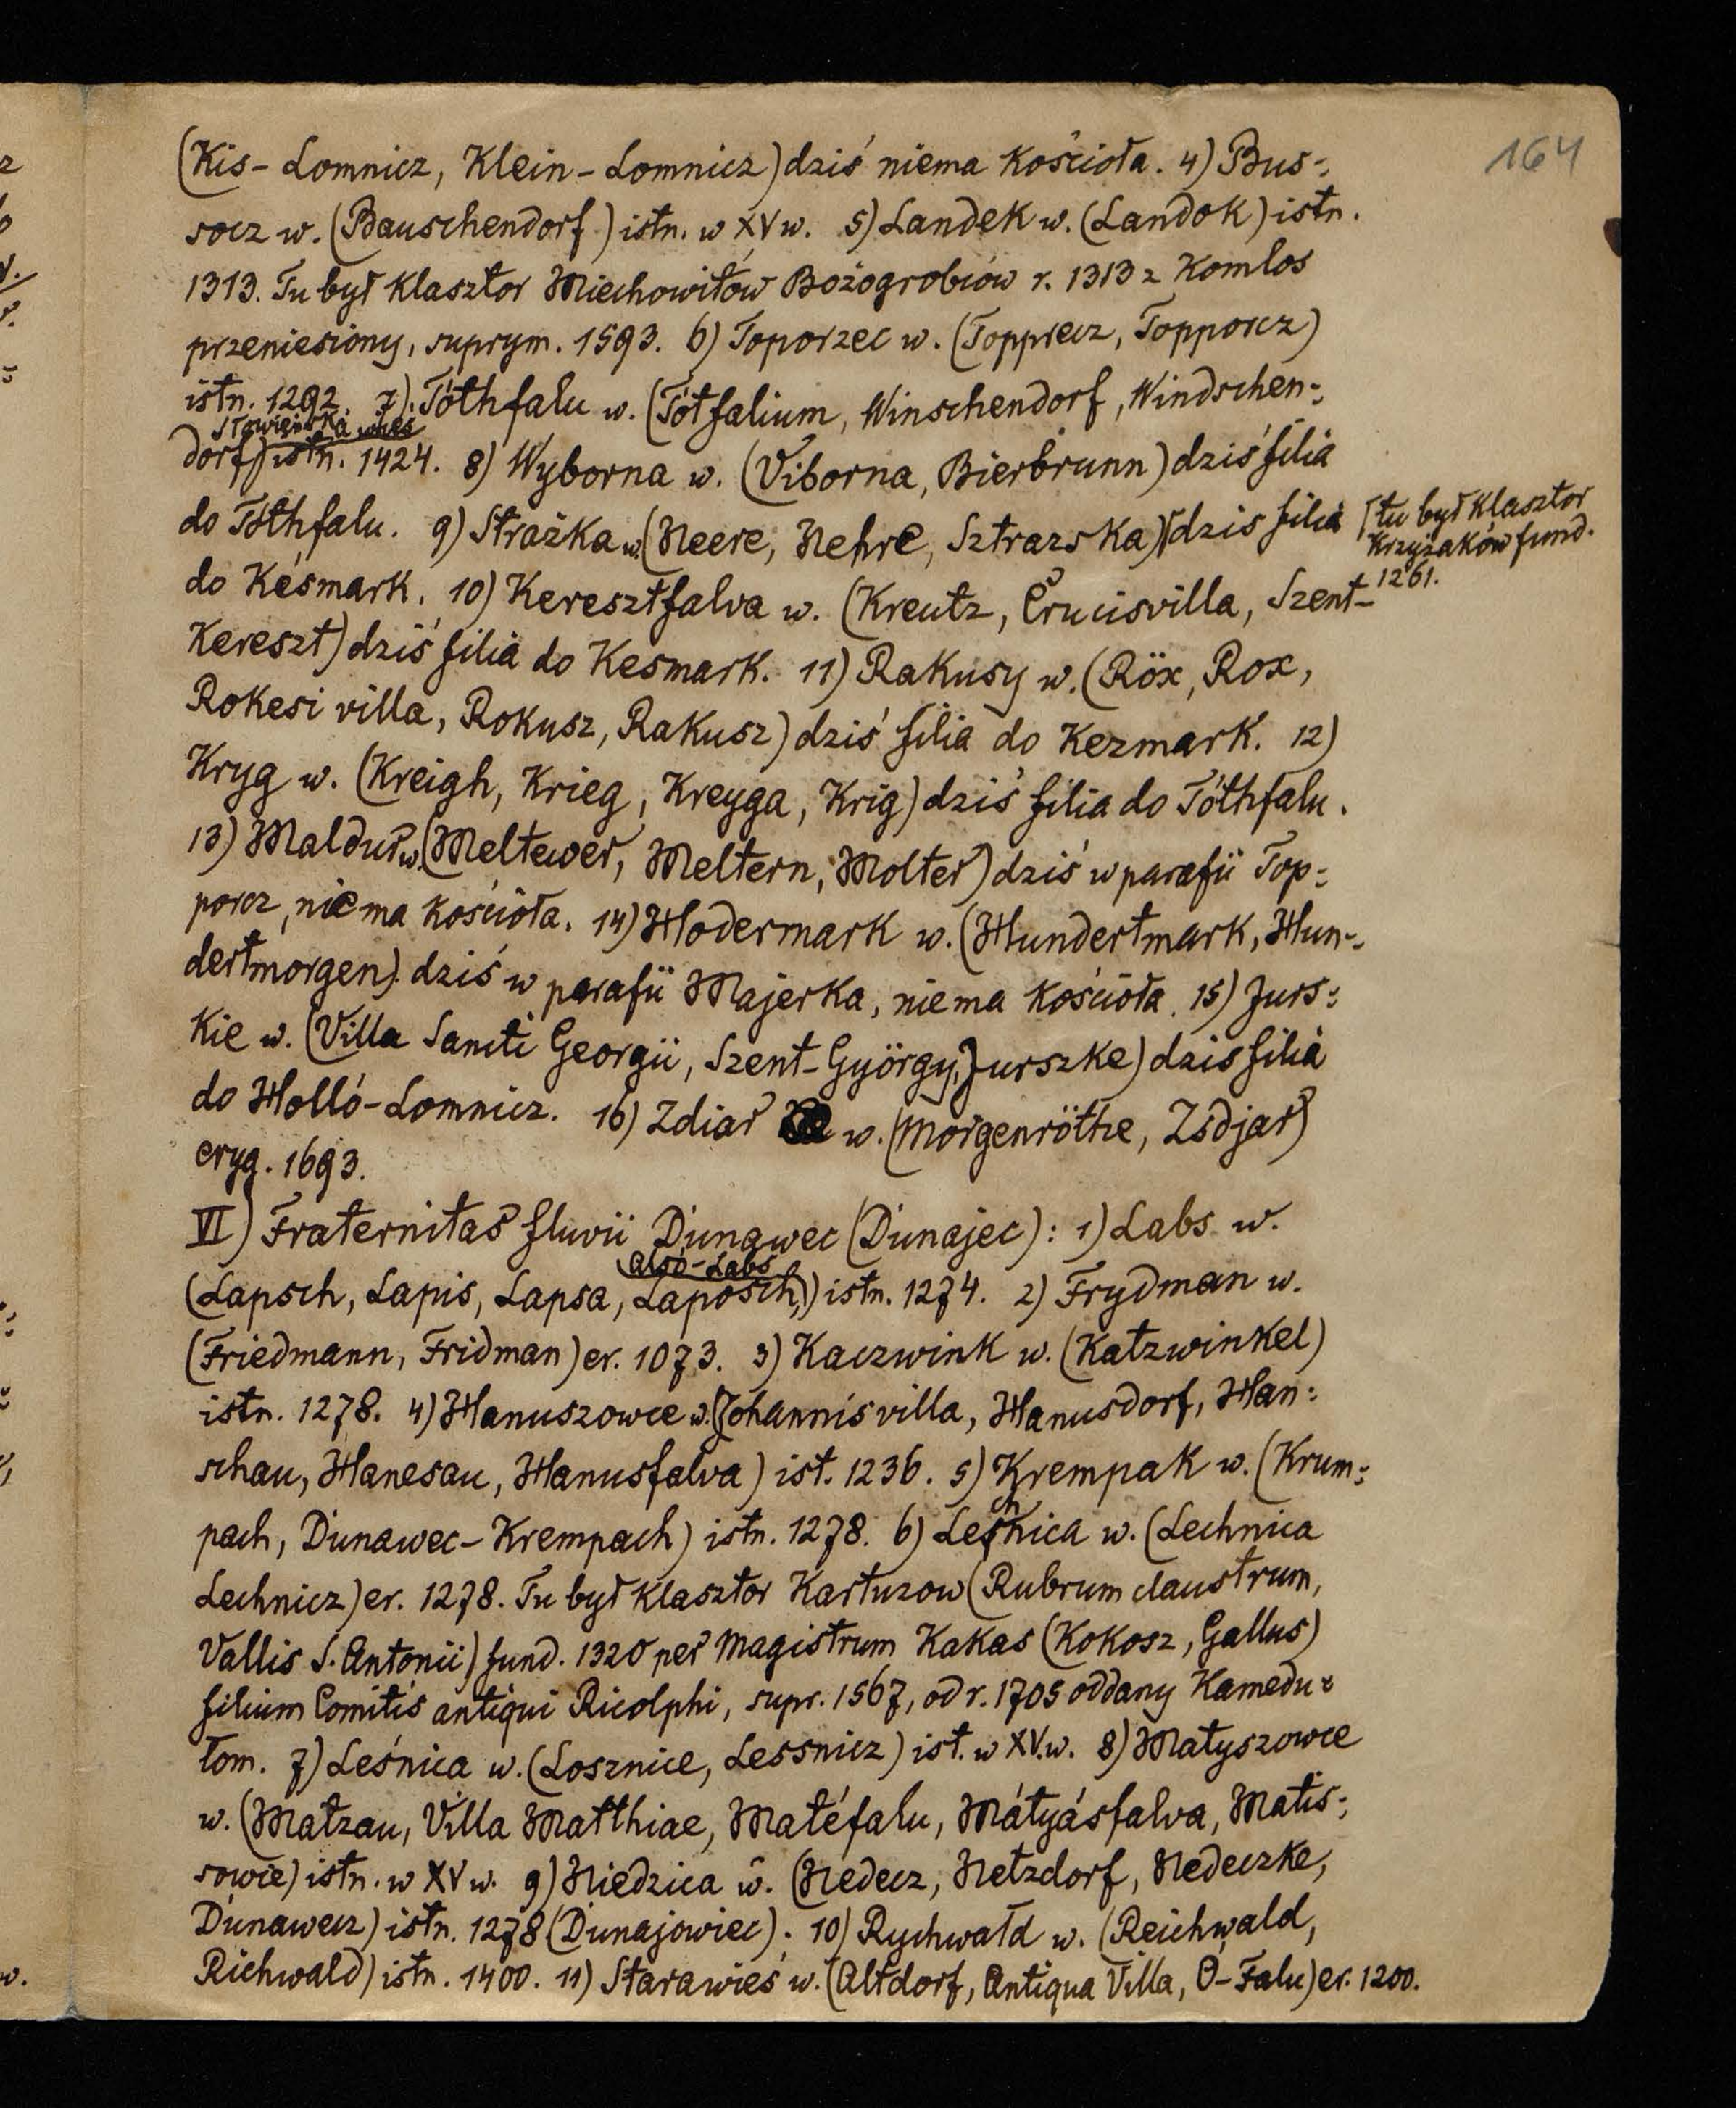 164
(Kis-Lomnicz, Klein-Lomnicz) dziś niema kościoła. 4) Bus-
socz w. (Bauschendorf) istn. w XV w. 5) Landek w. (Landok) istn.
1313. Tu był klasztor Miechowitów Bożogrobców r. 1313 z Komlos
przeniesiony, suprym. 1593. 6) Toporzec w. (Topprecz, Topporcz)
istn. 1292. 7) Tóthfalu w. (Tótfalium, Winschendorf, Windschen-
Słowieńska wieś
dorf) istn. 1424. 8) Wyborna w. (Viborna, Bierbrunn) dziś filia
do Tóthfalu. 9) Strażka w. (Neere, Nehre, Sztrazska) [dzis filia
[tu był klasztor
Krzyżaków fund.
1261.
do Késmark. 10) Keresztfalva w. (Kreutz, Crucisvilla, Szent-
Kereszt) dziś filia do Kesmark. 11) Rakusy w. (Röx, Rox,
Rokesi villa, Rokusz, Rakusz) dziś filia do Kezmark. 12)
Kryg w. (Kreigh, Krieg, Kreyga, Krig) dziś filia do Tóthfalu.
13) Maldur w. (Meltewer, Meltern, Molter) dziś w parafii Top-
porcz, niema kościoła. 14) Hodermark w. (Hundertmark, Hun-
dertmorgen) dziś w parafii Majerka, niema kościoła. 15) Jurs-
kie w. (Villa Sancti Georgii, Szent-György, Jurszke) dzis filia
do Holló-Lomnicz. 16) Zdiar w. (Morgenröthe, Zsdjar)
eryg. 1693.
VI) Fraternitas fluvii Dunawec (Dunajec): 1) Labs w.
alsó-Labs
(Lapsch, Lapis, Lapsa, Laposch,) istn. 1274. 2) Frydman w.
(Friedmann, Fridman) er. 1073. 3) Kaczwink w. (Katzwinkel)
istn. 1278. 4) Hanuszowce w. (Johannisvilla, Hanusdorf, Han-
schau, Hanesau, Hanusfalva) ist. 1236. 5) Krempak w. (Krum-
pach, Dunawec-Krempach) istn. 1278. 6) Lechnica w. (Lechnica
Lechnicz) er. 1278. Tu był klasztor Kartuzow (Rubrum claustrum,
Vallis S. Antonii) fund. 1320 per Magistrum Kakas (Kokosz, Gallus)
filium Comitis antiqui Ricolphi, supr. 1567, od r. 1705 oddany Kamedu-
łom. 7) Leśnica w. (Losznice, Lessnicz) ist. w XV.w. 8) Matyszowce
w. (Matzau, Villa Matthiae, Matéfalu, Mátyásfalva, Matis-
sowce) istn. w XV w. 9) Niedzica w. (Nedecz, Netzdorf, Nedeczke,
Dunawecz) istn. 1278 (Dunajowiec). 10) Rychwałd w. (Reichwald,
Richwald) istn. 1400. 11) Starawieś w. (Altdorf, Antiqua Villa, Ó-Falu) er. 1200.